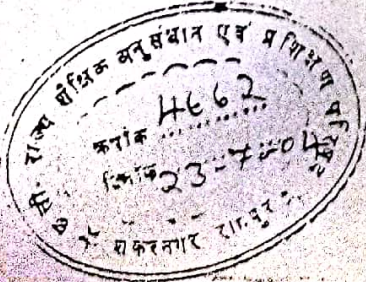 छ.ग. राज्य शैक्षिक अनुसंधान एवं प्रशिक्षण परिषद
क्रमांक 4662
दिनांक 23-7-04
शंकरनगर रायपुर